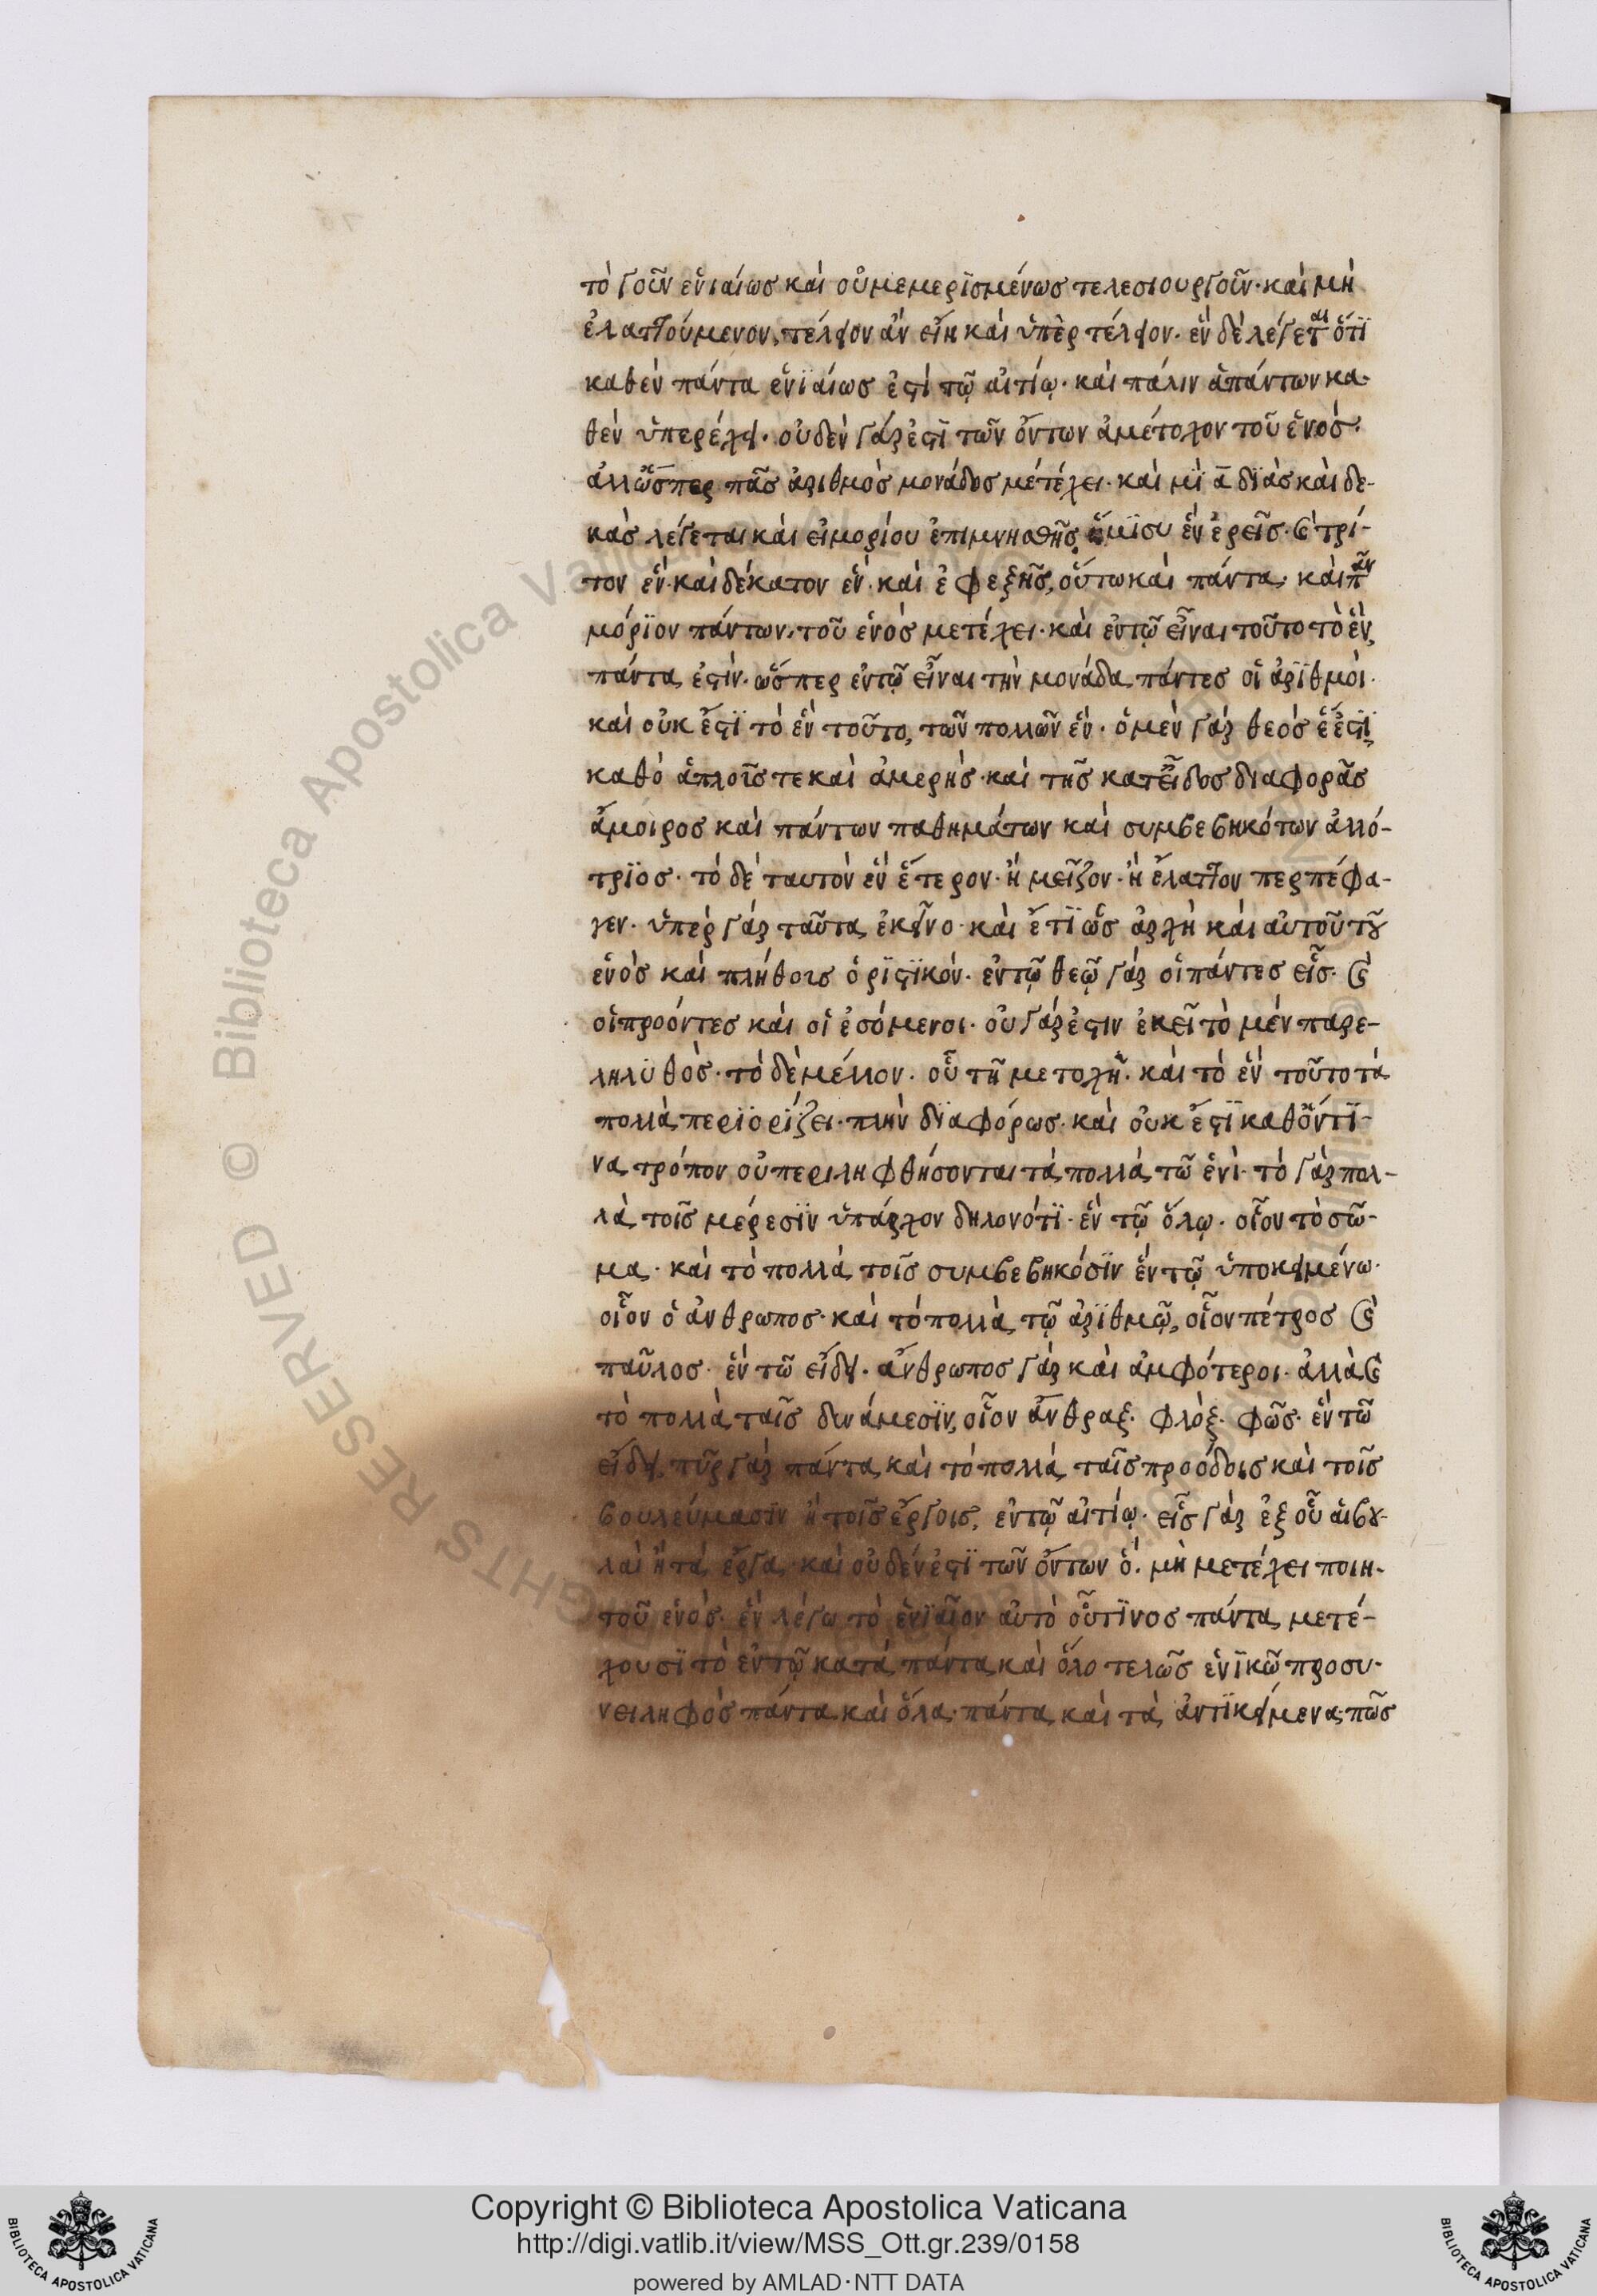 τὸ γοῦν ἑνιαίως καὶ οὐ μεμερϊσμένως τελεσιουργοῦν· καὶ μὴ
ἐλαττούμενον, τέλειον ἂν εἴη καὶ ὑπὲρ τέλειον· ἓν δὲ λέγεται ὅτϊ
καθὲν πάντα ἑνϊαίως ἐστὶ τῷ αἰτίῳ· καὶ πάλιν ἁπάντων κα-
θὲν ὑπερέχει· οὐδὲν γάρ ἐστϊ τῶν ὄντων ἀμέτοχον τοῦ ἑνός·
ἀλλ' ὥσπερ πᾶς ἀριθμὸς μονάδος μετέχει· καὶ μϊα δϊὰς καὶ δε-
κὰς λέγεται καὶ εἰ μορίου ἐπιμνησθῆς, ἥμϊσυ ἓν ἐρεῖς· καὶ τρί-
τον ἕν· καὶ δέκατον ἕν· καὶ ἐφεξῆς, οὕτω καὶ πάντα· καὶ πᾶν
μόρϊον πάντων, τοῦ ἑνὸς μετέχει· καὶ ἐν τῷ εἶναι τοῦτο τὸ ἓν,
πάντα ἐστίν· ὥσπερ ἐν τῷ εἶναι τὴν μονάδα, πάντες οἱ ἀρϊθμοί·
καὶ οὐκ ἔστϊ τὸ ἓν τοῦτο, τῶν πολλῶν ἕν· ὁ μὲν γὰρ θεὸς ἕ ἐστϊ
καθὸ ἁπλοῖς τε καὶ ἀμερής· καὶ τῆς κατεῖδος διαφορᾶς
ἄμοιρος καὶ πάντων παθημάτων καὶ συμβεβηκότων ἀλλό-
τρϊος· τὸ δὲ ταυτὸν ἓν ἕτερον· ἢ μεῖζον· ἢ ἔλαττον περπέφα-
γεν· ὑπὲρ γὰρ ταῦτα ἐκεῖνο· καὶ ἔτϊ ὡς ἀρχὴ καὶ αὐτοῦ τοῦ
ἑνὸς καὶ πλήθοις ὁρϊστϊκόν· ἐν τῷ θεῷ γὰρ οἱ πάντες εἷς· καὶ
οἱ προόντες καὶ οἱ ἐσόμενοι· οὐ γάρ ἐστιν ἐκεῖ τὸ μὲν παρε-
ληλυθὸς· τὸ δὲ μέλλον· οὗ τῆ μετοχῆ· καὶ τὸ ἓν τοῦτο τὰ
πολλὰ περϊορίζει· πλὴν δϊαφόρως· καὶ οὐκ ἔστϊ καθ' ὅντϊ-
να τρόπον οὐ περιληφθήσονται τὰ πολλὰ τῶ ἑνί· τὸ γὰρ πολ-
λὰ τοῖς μέρεσϊν ὑπάρχον δηλονότϊ· ἓν τῷ ὅλῳ· οἷον τὸ σῶ-
μα· καὶ τὸ πολλὰ τοῖς συμβεβηκόσϊν ἓν τῷ ὑποκειμένω·
οἷον ὁ ἄνθρωπος· καὶ τὸ πολλὰ τῷ ἀρϊθμῷ, οἷον πέτρος καὶ
παῦλος· ἓν τῶ εἴδει· ἄνθρωπος γὰρ καὶ ἀμφότεροι· ἀλλὰ καὶ
τὸ πολλὰ ταῖς δυνάμεσϊν, οἷον ἄνθραξ· φλὸξ· φῶς· ἓν τῶ
εἴδει, πῦρ γὰρ πάντα καὶ τὸ πολλὰ ταῖς προόδοις καὶ τοῖς
βουλεύμασϊν ἢ τοῖς ἔργοις, ἐν τῷ αἰτίῳ· εἷς γὰρ ἐξ οὗ αἱ βου-
λαὶ ἢ τὰ ἔργα· καὶ οὐδέν ἐστϊ τῶν ὄντων ὅ· μὴ μετέχει ποιη-
τοῦ ἑνός· ἓν λέγω τὸ ἑνϊαῖον αὐτὸ οὗτϊνος πάντα μετέ-
χουσϊ τὸ ἐν τῷ κατὰ πάντα καὶ ὅλο τελῶς ἑνϊκῶ προσυ-
νειληφὸς πάντα καὶ ὅλα· πάντα καὶ τὰ ἀντϊκείμενα· πῶς
Copyright © Biblioteca Apostolica Vaticana
http://digi.vatlib.it/view/MSS_Ott.gr.239/0158
powered by AMLAD·NTT DATA
BIBLIOTECA APOSTOLICA VATICANA
BIBLIOTECA APOSTOLICA VATICANA